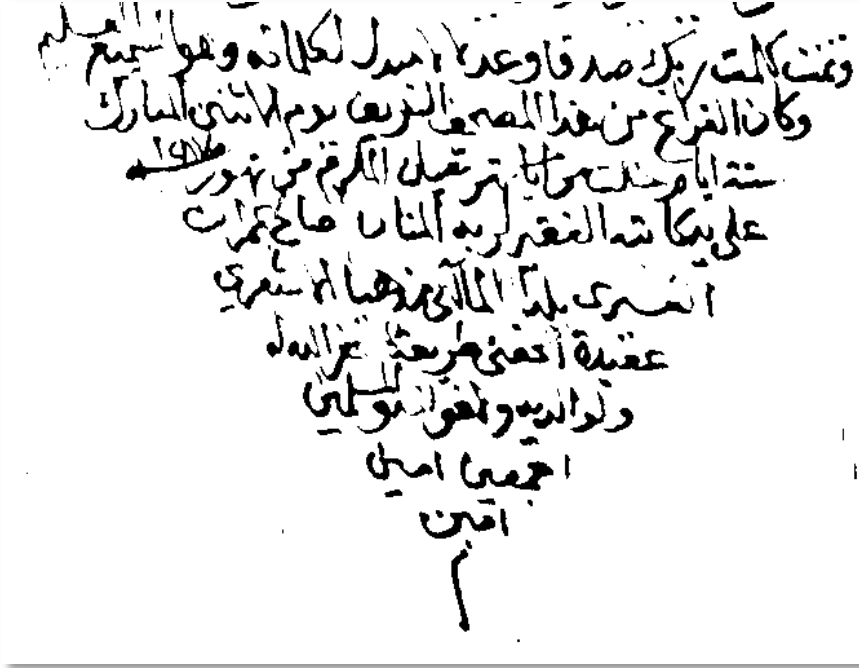 وتمت كلمت ربك صدقا وعدلا لا مبدل لكلماته وهو السميع العليم
وكان الفراغ من هذا المصحف الشريف يوم الاثنين المبارك
ستة ايام خلت من المكرم من شهور
على يد كاتبه الفقير لربه المنان صالح
بلدا المالكي مذهبا الاشعري
عقيدة طريقة غفر الله له
ولوالديه والمسلمين
اجمعين امين
امين
م